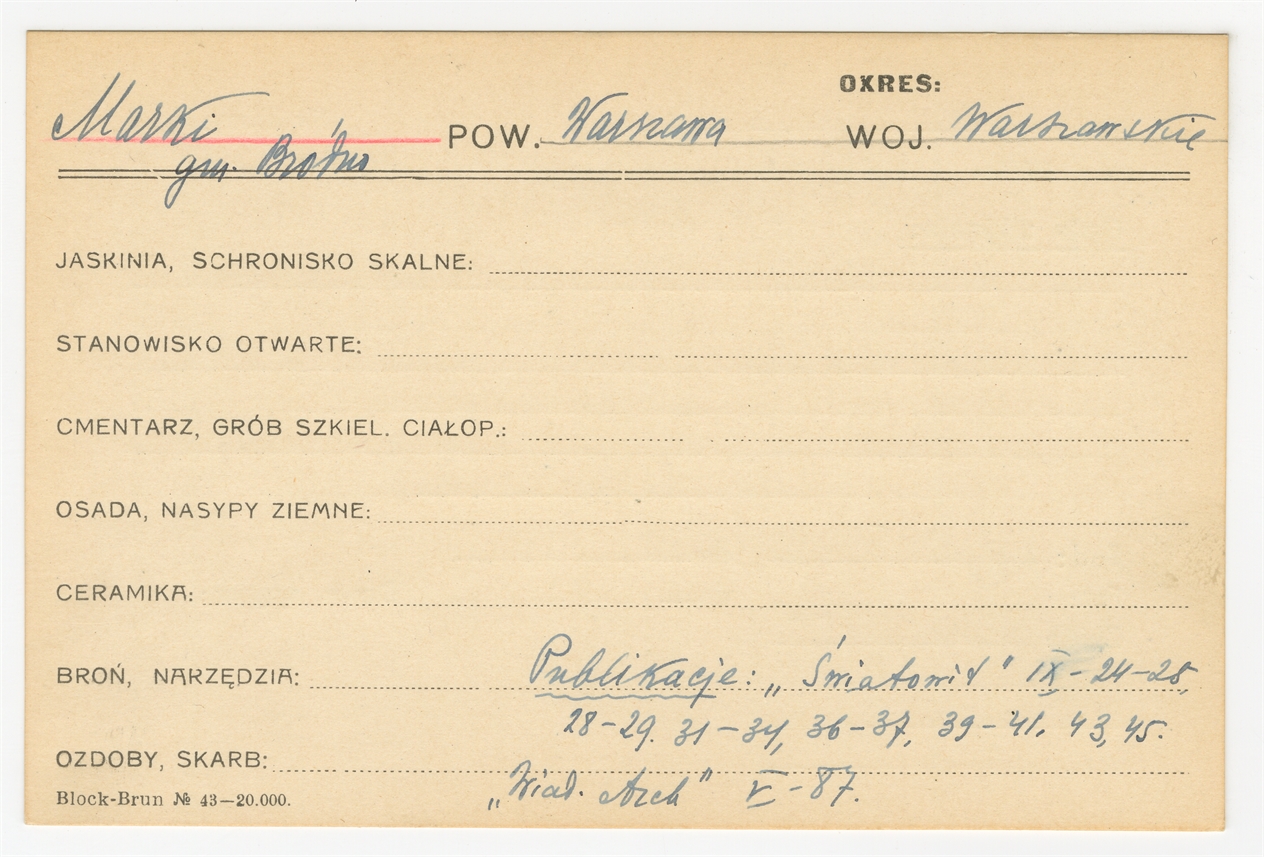 OKRES:
Marki POW. Warszawa WOJ. Warszawskie
gm. Bródno
JASKINIA, SCHRONISKO SKALNE:
STANOWISKO OTWARTE:
CMENTARZ, GRÓB SZKIEL. CIAŁOP.:
OSADA, NASYPY ZIEMNE:
CERAMIKA:
BROŃ, NARZĘDZIA: Publikacje: „Światowit" IX - 24-25,
28-29. 31-34, 36-37, 39-41. 43, 45.
OZDOBY, SKARB:
„Wiad. Arch" V - 87.
Block-Brun № 43—20.000.